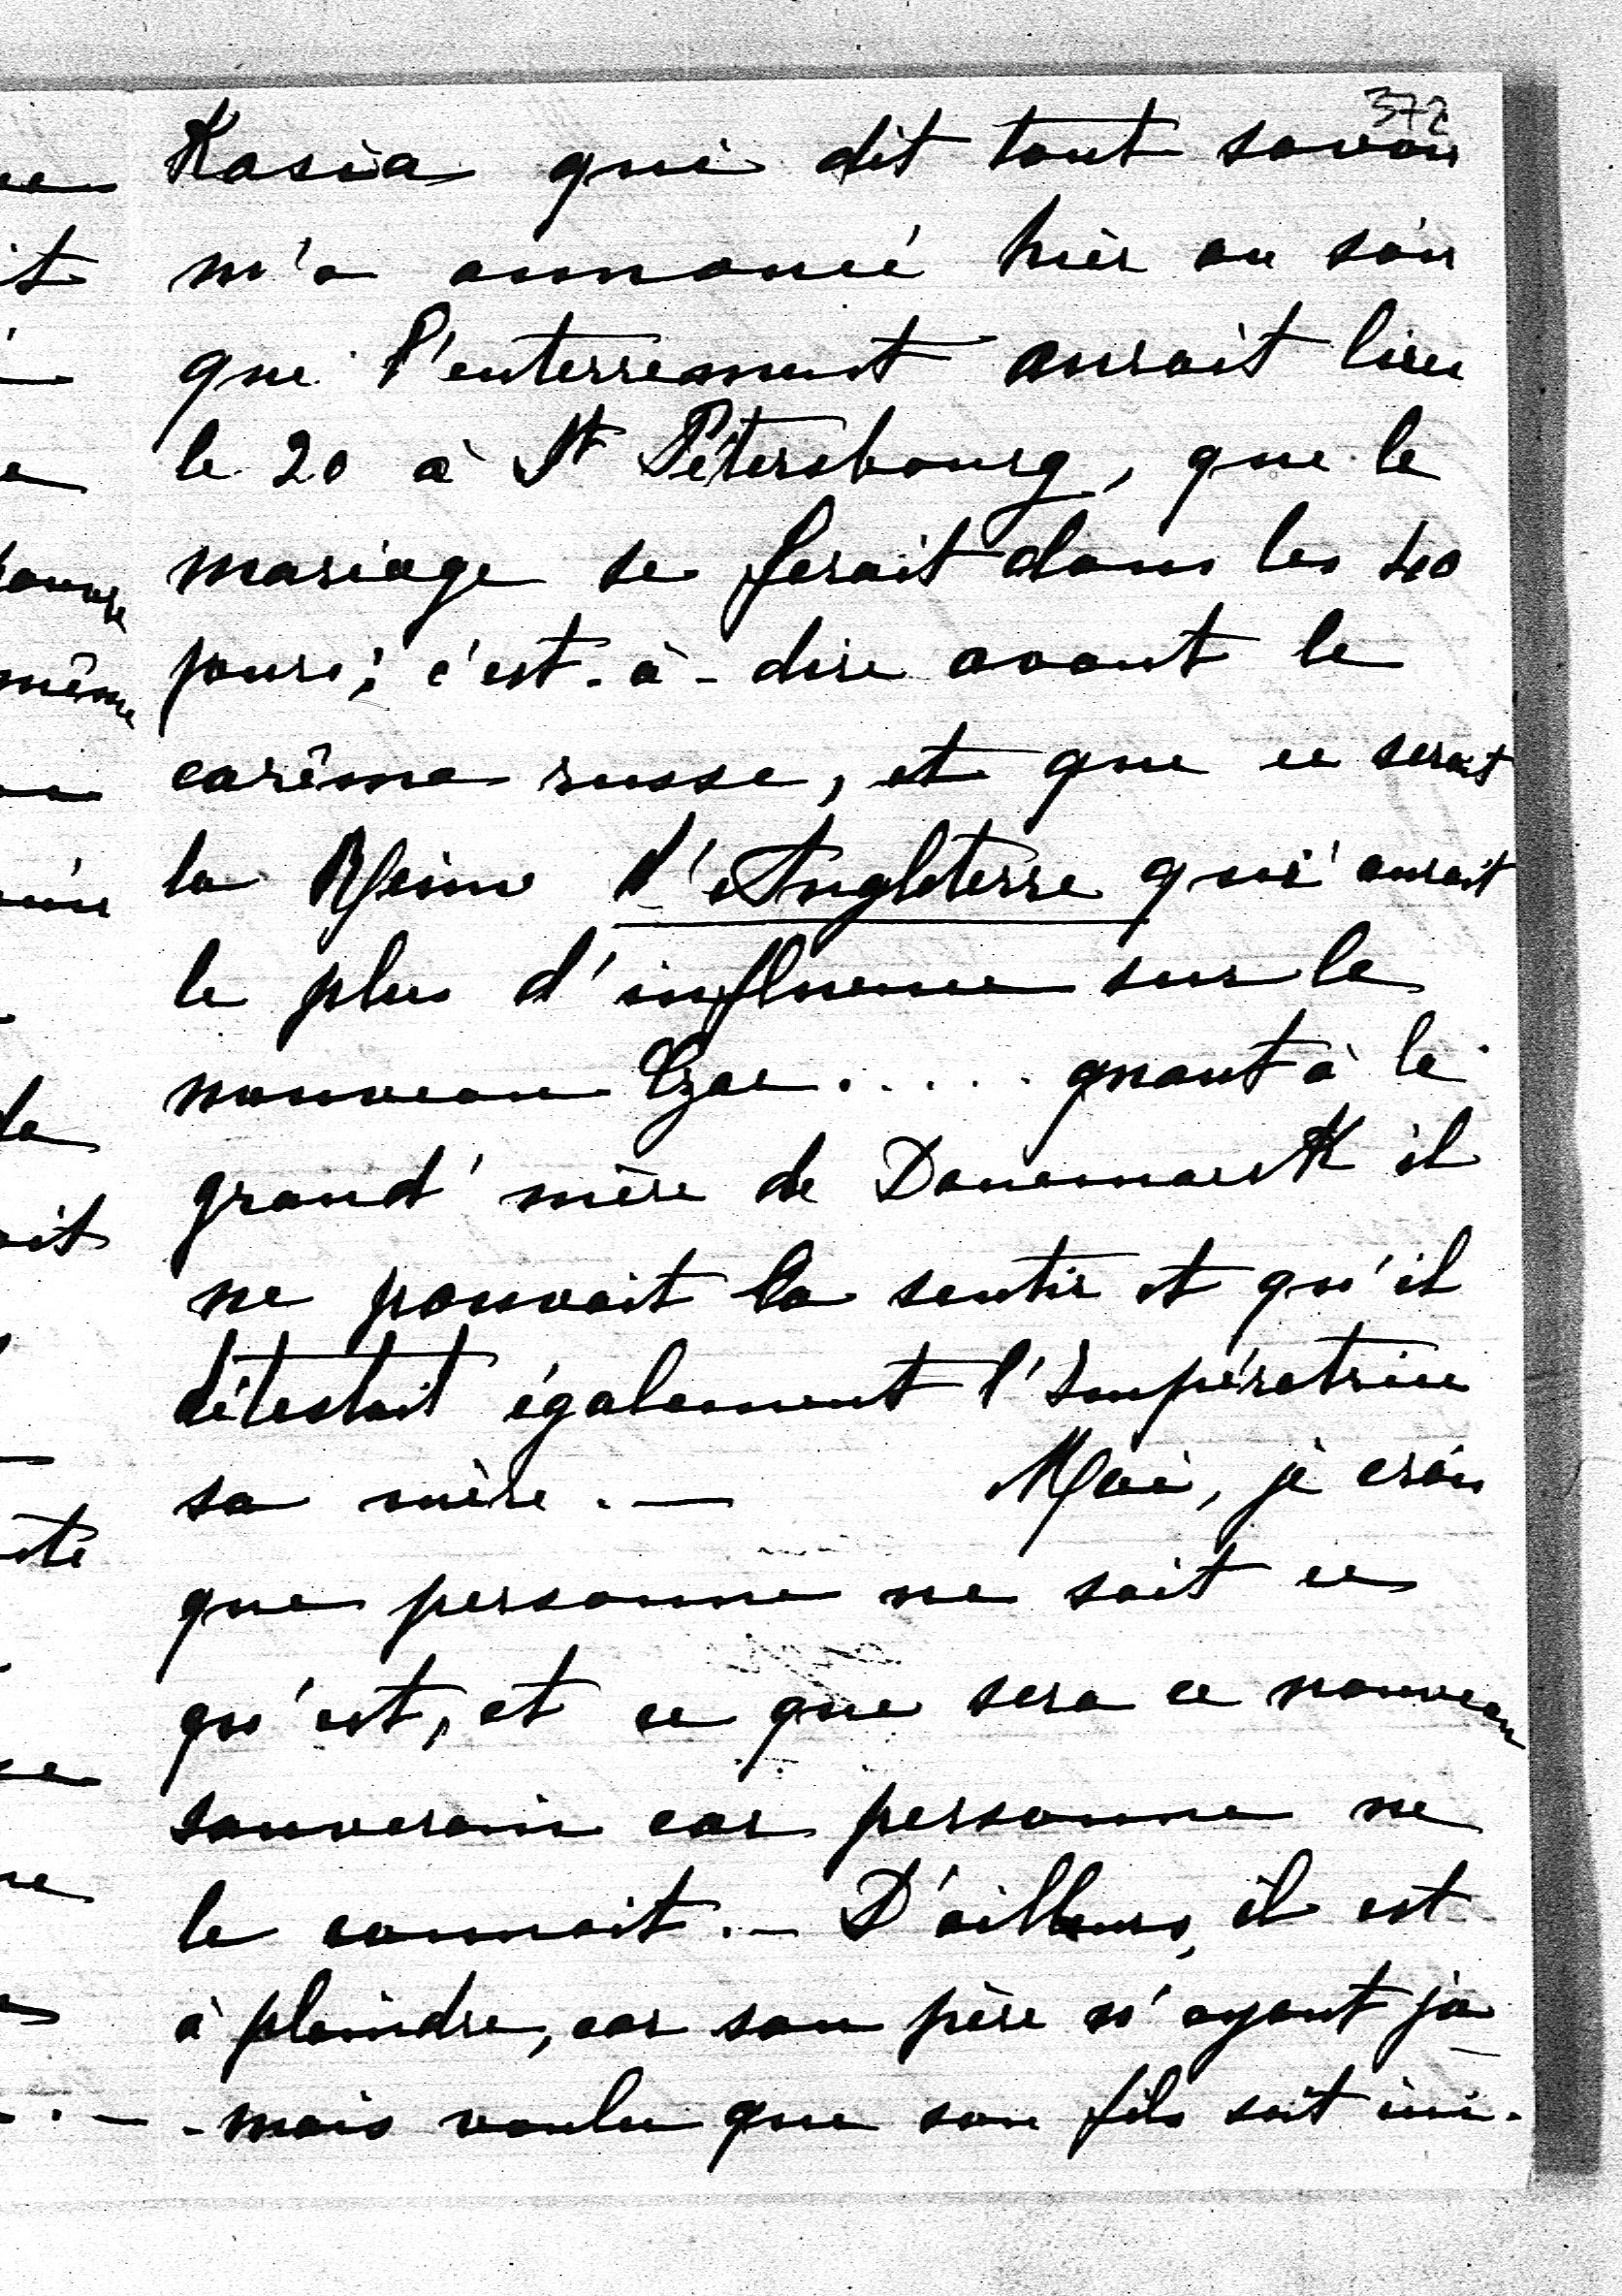 372
Kasia qui dit tout savoir
m'a annoncé hier au soir
que l'enterrement aurait lieu
le 20 à St Pétersbourg, que le
mariage se ferait dans les 40
jours; c'est-à-dire avant le
carême russe, et que ce serait
la Reine d'Angleterre qui aurait
le plus d'influence sur le
nouveau Czar..... quant à la
grand'mère de Danemark il
ne pouvait la sentir et qu'il
détestait également l'Impératrice
sa mère. — Moi, je crois
que personne ne sait ce
qu'est, et ce que sera ce nouveau
souverain car personne ne
le connait. — D'ailleurs, il est
à plaindre, car son père n'ayant ja-
-mais voulu que son fils soit ini-